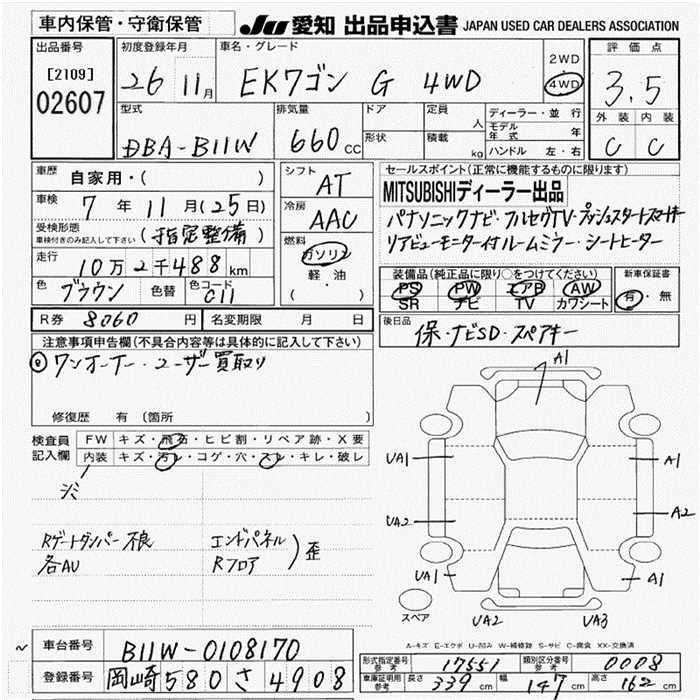 車内保管・守衛保管
JU 愛知 出品申込書 JAPAN USED CAR DEALERS ASSOCIATION
出品番号
[2109]
02607
初度登録年月
26 11月
車名・グレード
EKワゴン G 4WD
2WD
4WD
評価点
3.5
外装 内装
C C
型式
DBA-B11W
排気量
660 CC
ドア
形状
定員 人
積載 kg
ディーラー・並行
モデル年式 年
ハンドル 左・右
車歴
自家用・( )
車検
7年 11月(25日)
受検形態
車検付きのみ記入して下さい
(指定整備)
走行
10万2千488km
色
ブラウン
色替
色コード
C11
シフト
AT
冷房
AAC
燃料
ガソリン
軽・油
( )
セールスポイント(正常に機能するものに限ります)
MITSUBISHIディーラー出品
パナソニックナビ・フルセグTV・プッシュスタートスマートキー
リアビューモニター付ルームミラー・シートヒーター
装備品(純正品に限り○をつけてください)
PS PW エアB AW
SR ナビ TV カワシート
新車保証書
有・無
R券 8060円
名変期限 月 日
後日品
保・ナビSD・スペアキー
注意事項申告欄(不具合内容等は具体的に記入して下さい)
ワンオーナー・ユーザー買取り
修復歴 有(箇所 )
検査員記入欄
FW キズ・飛石・ヒビ割・リペア跡・X要
内装 キズ・汚レ・コゲ・穴・スレ・キレ・破レ
シミ
Rゲートダンパー不良
各AU
エンドパネル
Rフロア
)歪
A1
UA1 A1
UA2 A2
UA1 A1
UA2 UA3
スペア
A-キズ E-エクボ U-凹み W-補修跡 S-サビ C-腐食 XX-交換済
車台番号 B11W-0108170
登録番号 岡崎 580 さ 4908
形式指定番号 参考 17551
類別区分番号 参考 0008
車庫証明用 参考 長さ 339cm 幅 147cm 高さ 162cm